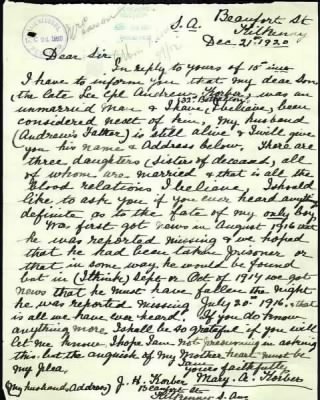 Beaufort St
S.A. Kilkenny
Dec. 21st 1920
Dear Sir
In reply to yours of 15 inst
I have to inform you that my dear Son
(the late L/e Cpl Andrew Korber, was an
32nd Battalion
unmarried man & I have, I believe, been
considered next of kin, My husband
(Andrew's Father) is still alive & I will give
you his name & Address below. There are
three daughters (Sisters of deceased, all
of whom are married & that is all the
Blood relations I believe, I should
like to ask you if you ever heard anything
definite as to the fate of my only boy,
We first got news in August 1916 that
he was reported missing & we hoped
that he had been taken prisoner or
that in some way, he would be found
but in (I think) Sept or Oct of 1917 we got
news that he must have fallen the night
he was reported missing July 20th 1916, & that
is all we have ever heard. If you do know
anything more I shall be so grateful if you will
let me know, I hope I am not presuming in asking
this. but the anguish of my Mother heart must be
my plea,
I am
yours faithfully
Mary. A. Korber
(My husbands Address) J. H. Korber
Beaufort St
Kilkenny S. Aus